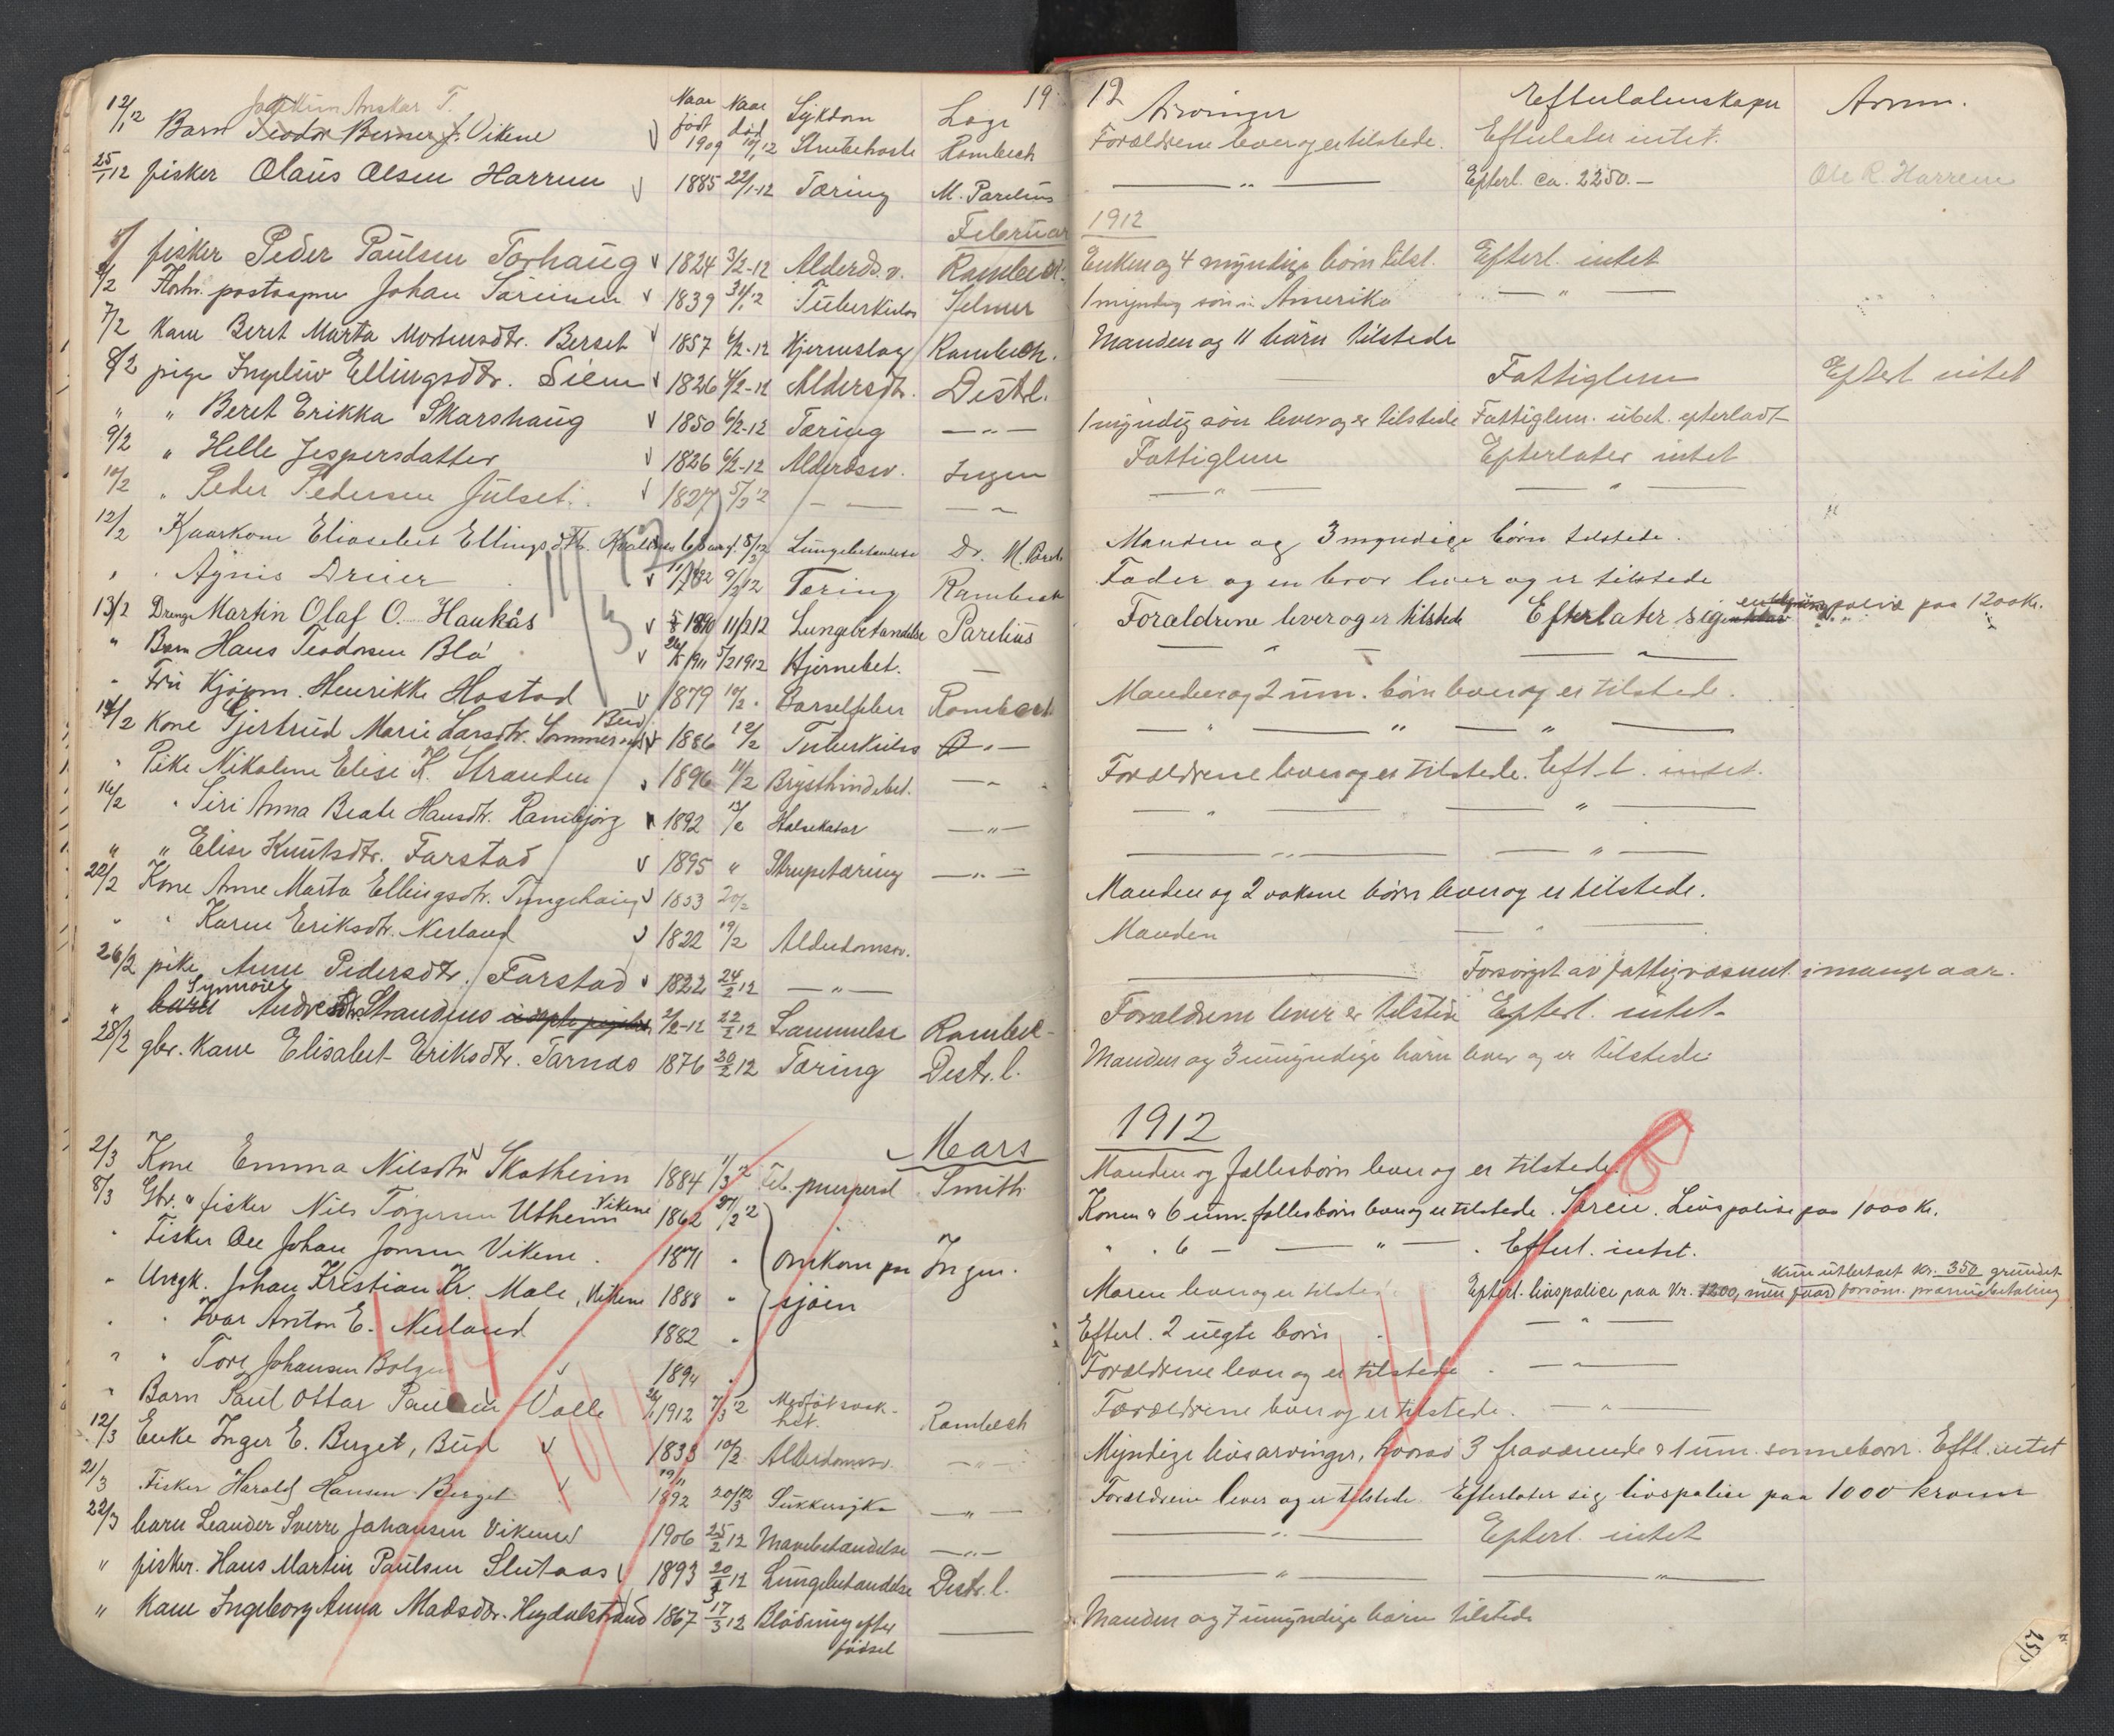 Naar født Naar død Sykdom Læge 19 12 Arvinger Efterladenskaper Anm.
Joakim Anskar T.
12/1 12 Barn Teodor Berner J. Vikene 1909 10/1 12 Strubehoste Rambech Forældrene lever og er tilstede. Efterlater intet.
25/1 12 fisker Olaus Olsen Harrem 1885 22/1-12 Tæring M. Parelius — " — Efterl. ca. 2250.— Ole R. Harrem
Februar 1912
fisker Peder Paulsen Torhaug 1824 3/2-12 Aldersv. Rambech Enken og 4 myndige børn tilst. Efterl. intet
2/2 postaapner Johan 1839 31/1 12 Tuberkulos Selmer 1 myndig søn i Amerika — " —
7/2 Kone Beret Marta Mortensdtr. Berset 1857 6/2-12 Hjerneslag Rambech. Manden og 11 børn tilstede
8/2 pige Ingeliv Ellingsdtr. Siem 1826 4/2-12 Aldersdr. Distrl. Fattiglem Efterl intet
" " Beret Erikka Skarshaug 1850 6/2-12 Tæring — " — 1 myndig søn lever og er tilstede Fattiglem. ubet. efterladt
9/2 " Helle Jespersdatter 1826 6/2-12 Alderdsv. Ingen Fattiglem Efterlater intet
10/2 " Peder Pedersen Julset. 1827 5/2 12 — — — " — — " — — " —
12/2 Kaarkone Eliasbet Ellingsdtr. 68 aar 8/2 12 Lungebetændelse Dr. M. Parel. Manden og 3 myndige børn tilstede.
" " Agnis Drier 1892 9/2 12 Tæring Rambech Fader og en bror lever og er tilstede
13/2 Dreng Martin Olaf O. Haukås 1890 11/2 12 Lungebetændelse Parelius Forældrene lever og er tilstede Efterlater sig police paa 1200 Kr.
" Barn Hans Teodorsen Blå 1911 5/2 1912 Hjernebet. — — " — — " —
" Fru Kjøpm. Henrikke Hostad 1879 10/2 Barselfeber Rambech Manden og 2 um. børn lever og er tilstede.
14/2 Kone Gjertrud Marie Larsdtr. Sommernes Bud 1886 12/2 Tuberkulos — " — — " — " — " —
" Pike Nikoline Elise K. Stranden 1896 11/2 Brysthindebet. — " — Forældrene lever og er tilstede. Eft.l. intet.
16/2 " Siri Anna Beate Hansdtr. Rambjörg 1892 13/2 Halsekatar — " — — " — — " —
" " Elise Knutsdtr. Farstad 1895 " Strupetæring — " — — " — — " —
22/2 Kone Anne Marta Ellingsdtr. Tungehaug 1833 20/2 Manden og 2 voksne børn lever og er tilstede.
" " Karen Eriksdtr. Nerland 1822 19/2 Alderdomsv. Manden — " —
26/2 pike Anne Pedersdtr. Farstad 1822 24/2 12 — " — — Forsørget av fattigvæsenet i mange aar.
" barn Synnøve Strandens 2/2-12 22/2 12 Lammelse Rambe- Forældrene lever er tilstede Efterl. intet
28/2 gbr. kone Elisabet Eriksdtr. Tarnæs 1876 20/2 12 Tæring Distr. l. Manden og 3 umyndige børn lever og er tilstede.
Mars 1912
2/3 Kone Emma Nilsdtr Skotheim 1884 1/3 12 Feb. puerperal Smith Manden og fællesbørn lever og er tilstede.
8/3 Gbr. & fisker Nils Torgersen Utheim Vikene 1862 27/2 12 Konen & 6 um. fællesbørn lever og er tilstede. Livspolise paa 1000 Kr.
" Fisker Ole Johan Jonsen Vikene. 1871 " omkom paa sjøen Ingen. " " 6 — " — . Efterl. intet.
" Ungk. Johan Kristian Kr. Male, Vikene 1888 " Moren lever og er tilstede Efterl. livspolice paa Kr. 1200, men kun utbetalt Kr. 350 grundet forsøm. præmiebetaling
" " Ivar Anton E. Nerland 1882 " Efterl. 2 uegte børn. — " —
" " Tore Johansen Bolgen 1894 " Forældrene lever og er tilstede. — " —
" Barn Paul Ottar Paulsen Valle 1912 7/3 12 Medfødt svakhet. Rambech Forældrene lever og er tilstede. — " —
12/3 Enke Inger E. Berget, Bud 1833 10/3 Alderdomsv. — " — Myndige livsarvinger, hvorav 3 fraværende & 1 um. sønnebarn. Eftl. intet
21/3 Fisker Harald Hansen Berget 1892 20/3 12 Sukkersyke — " — Forældrene lever og er tilstede Efterlater sig livspolise paa 1000 kroner
22/3 barn Leander Sverre Johansen Vikene 1906 25/2 12 Mavebetændelse — " — — " — Efterl. intet
" fisker. Hans Martin Paulsen Slutaas 1893 20/3 12 Lungebetændelse Distr. l. — " — — " —
" Kone Ingeborg Anna Madsdtr. Hugdalstrand 1867 17/3 12 Blødning efter fødsel — Manden og 7 umyndige børn tilstede